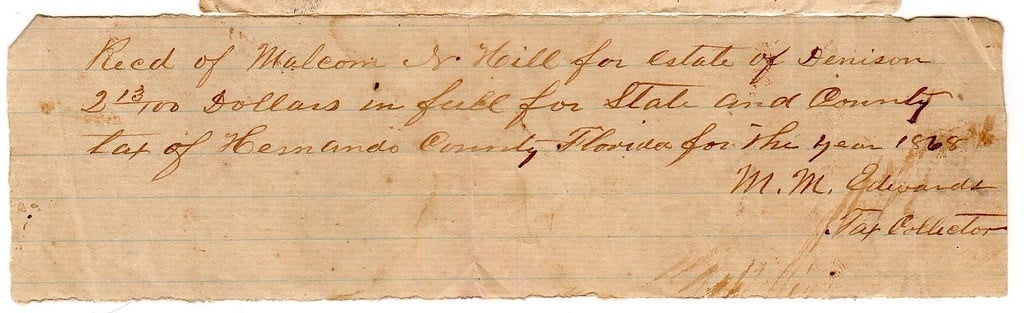 Recd of Malcom N Hill for estate of Denison
2 13/100 Dollars in full for State and County
tax of Hernando County Florida for the year 1868
M. M. Edwards
Tax Collector